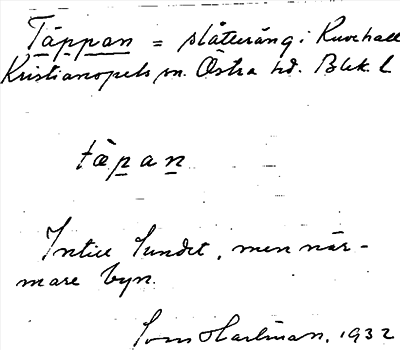 Täppan = slåtteräng i Ruvehall
Kristianopels sn. Östra hd. Blek. l
tæpan
Intill Sundet, men när-
mare byn.
Hartman, 1932